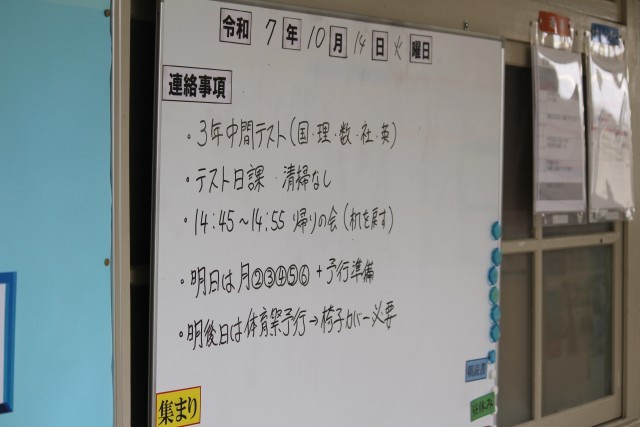 令和 7 年 10 月 14 日 火 曜日
連絡事項
・3年中間テスト(国・理・数・社・英)
・テスト日課・清掃なし
・14:45〜14:55 帰りの会(机を戻す)
・明日は月②③④⑤⑥+予行準備
・明後日は体育祭予行→椅子カバー必要
集まり
昼休み